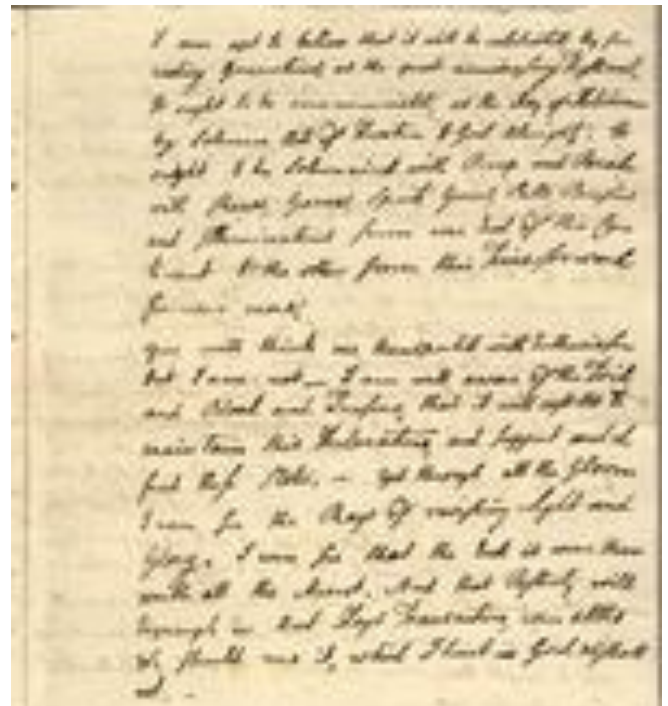 I am apt to believe that it will be celebrated, by suc
ceeding Generations, as the great anniversary Festival.
It ought to be commemorated, as the Day of Deliverance
by Solemn Acts of Devotion to God Almighty. It
ought to be solemnized with Pomp and Parade
with Shews, Games, Sports, Guns, Bells, Bonfires
and Illuminations from one End of this Con
tinent to the other from this Time forward
forever more.
You will think me transported with Enthusiasm
but I am not. — I am well aware of the Toil
and Blood and Treasure, that it will cost Us to
maintain this Declaration, and support and de
fend these States. — Yet through all the Gloom
I can see the Rays of ravishing Light and
Glory. I can see that the End is more than
worth all the Means. And that Posterity will
tryumph in that Days Transaction, even altho
We should rue it, which I trust in God We shall
not. —